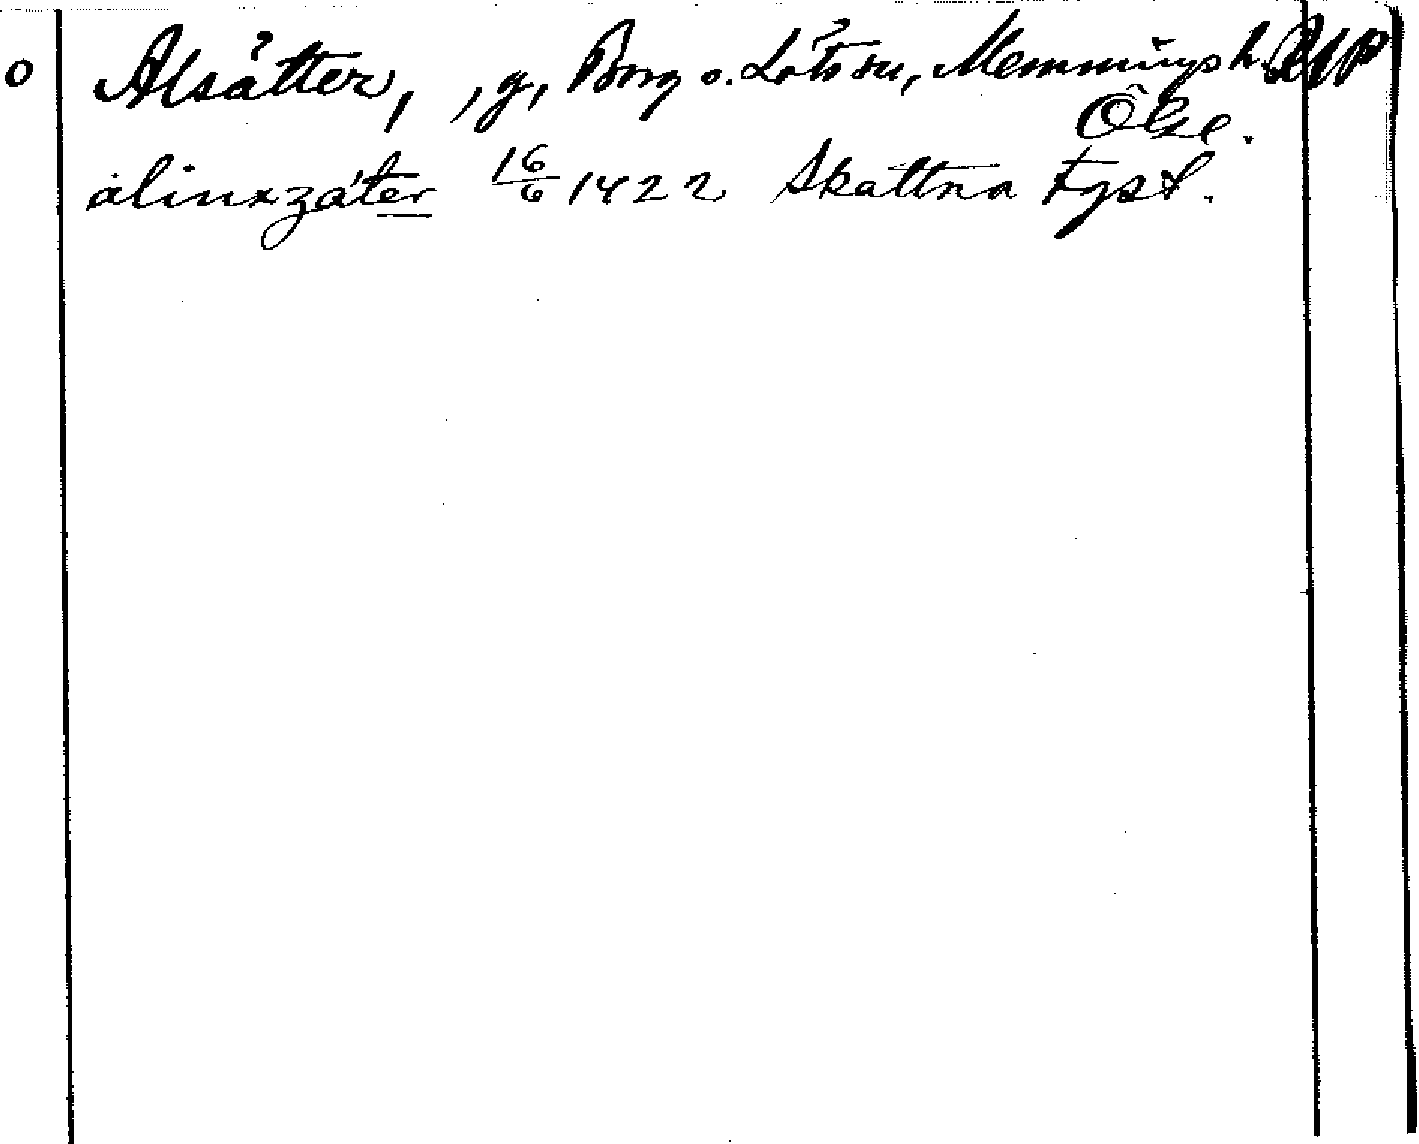 o Alsätter, , g, Borg o. Löts sn, Memmings h.
Ölse.
alinxzäter 16/6 1422 Skattna Fgst.